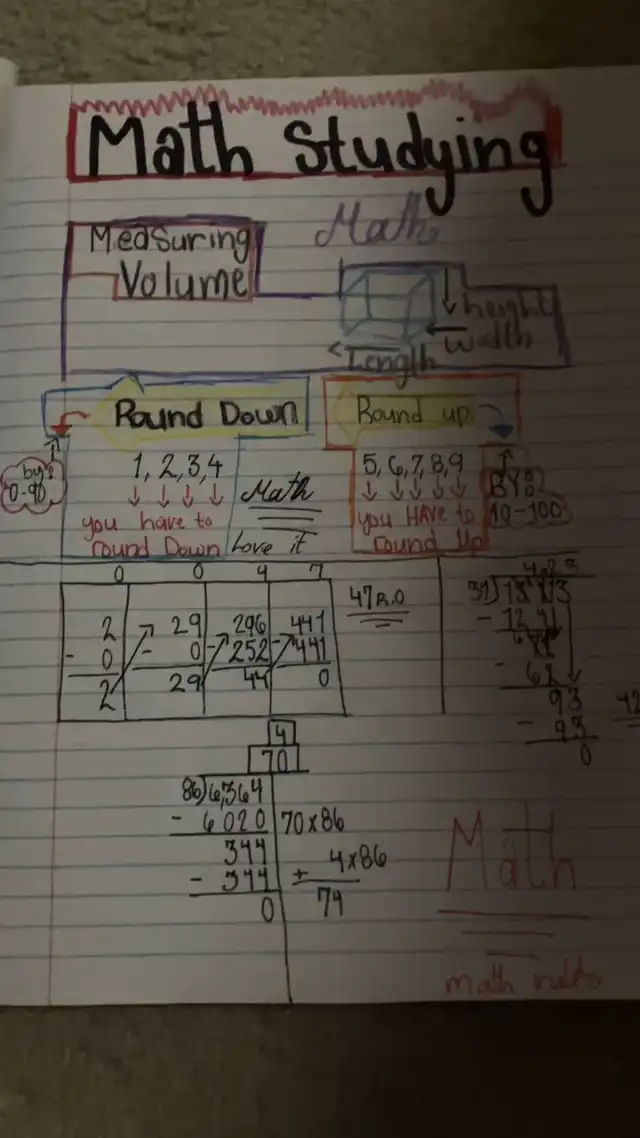 Math Studying
Measuring
Volume
Math
height
width
Length
Round Down
Round up
by:
0-90
1, 2, 3, 4
you have to
round Down
Math
Love it
5, 6, 7, 8, 9
you HAVE to
round Up
BY:
10-100
0 0 4 7
2 29 296 441
- 0 - 0 - 252 - 441
2 29 44 0
47 R.0
31
- 12
- 62
93
- 93
0
42
4
70
86)6,364
- 6020 70x86
344
- 344 + 4x86
0 74
Math
math rules